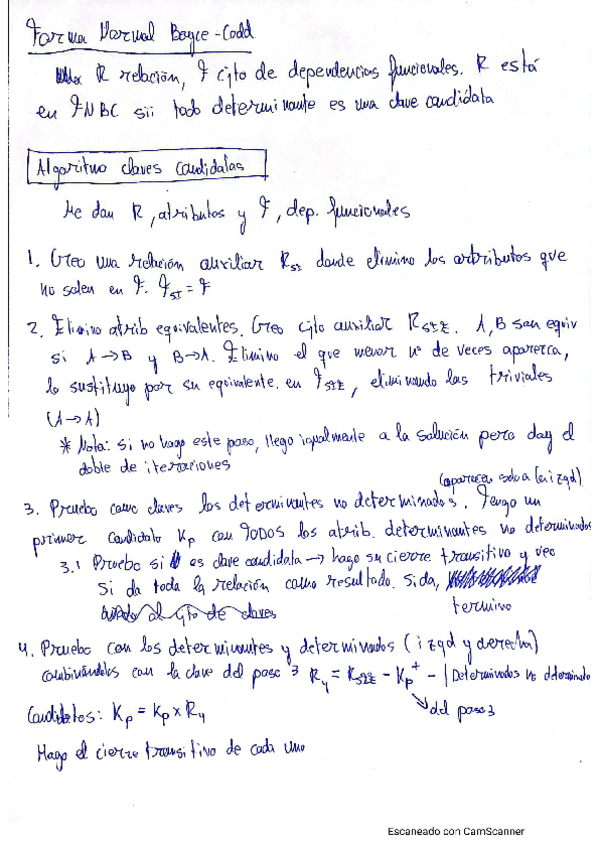 Forma Normal Boyce-Codd
R relación, F cjto de dependencias funcionales. R está
en FNBC sii todo determinante es una clave candidata
Algoritmo claves candidatas
Me dan R, atributos y F, dep. funcionales
1. Creo una relación auxiliar R_SI donde elimino los artributos que
no salen en F. F_SI = F
2. Elimino atrib equivalentes. Creo cjto auxiliar R_SIE. A, B son equiv
si A → B y B → A. Elimino el que menor nº de veces aparezca,
lo sustituyo por su equivalente. en F_SIE, eliminando las triviales
(A → A)
* Nota: si no hago este paso, llego igualmente a la solución pero doy el
doble de iteraciones
(aparecen solo a la izqd)
3. Pruebo como claves los determinantes no determinados. Tengo un
primer candidato Kp con TODOS los atrib. determinantes no determinados
3.1 Pruebo si es clave candidata → hago su cierre transitivo y veo
si da toda la relación como resultado. Si da,
termino
4. Pruebo con los determinantes y determinados (izqd y derecha)
combinándolos con la clave del paso 3 R4 = R_SIE - Kp+ - | Determinados no determinan
del paso 3
Candidatos: Kp = Kp x R4
Hago el cierre transitivo de cada uno
Escaneado con CamScanner